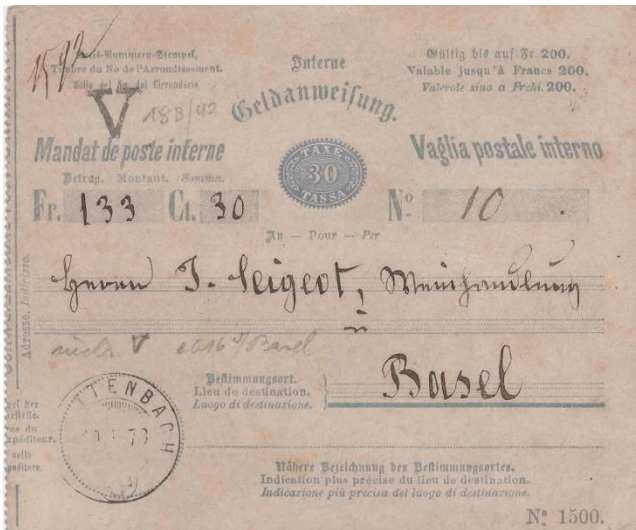 Kreis-Nummern-Stempel,
Timbre du No de l'Arrondissement.
Bollo del No. del Circondario
V
18B/42
Interne
Geldanweisung.
Gültig bis auf Fr. 200.
Valable jusqu'à Francs 200.
Valevole sino a Frchi. 200.
Mandat de poste interne
TAXE
30
TASSA
Vaglia postale interno
Betrag. Montant. Somma.
Fr. 133 Ct. 30
No 10
An — Pour — Per
Herrn J. Seigeot, Weinhandlung
in
Adresse. Indirizzo.
V Basel
Bestimmungsort.
Lieu de destination.
Luogo di destinazione.
Basel
TENBACH
73
Nähere Bezeichnung des Bestimmungsortes.
Indication plus précise du lieu de destination.
Indicazione più precisa del luogo di destinazione.
No 1500.